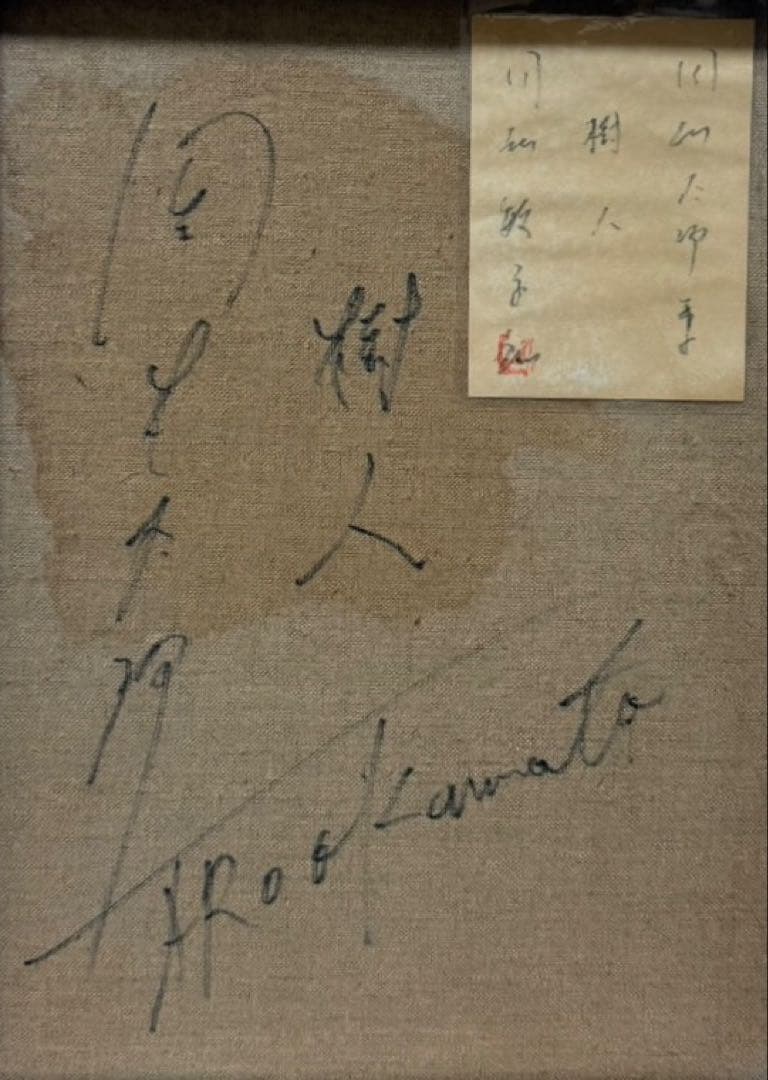 岡本太郎
樹人
岡本敏子
樹人
岡本太郎
TARO Okamoto